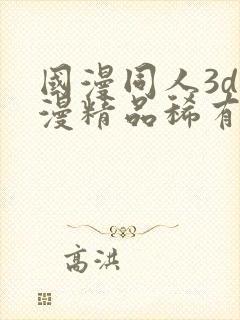 國漫同人3d
漫精品稀有
高洪